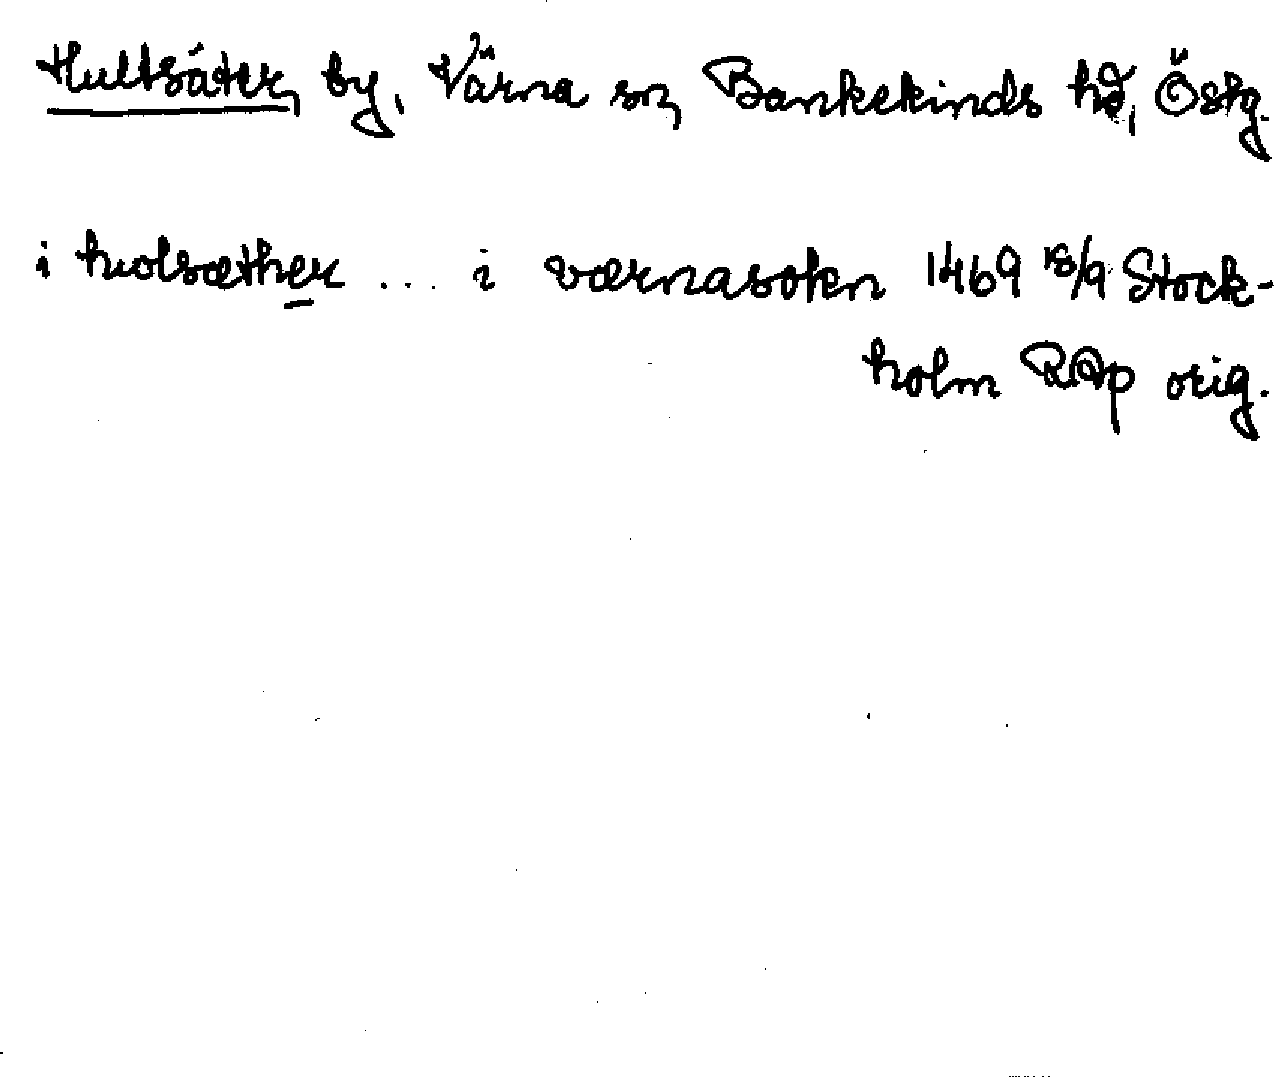 Hultsäter, by, Värna sn, Bankekinds hd, Östg.
i hwolsæther ... i værnasokn 1469 18/9 Stock-
holm RAp orig.